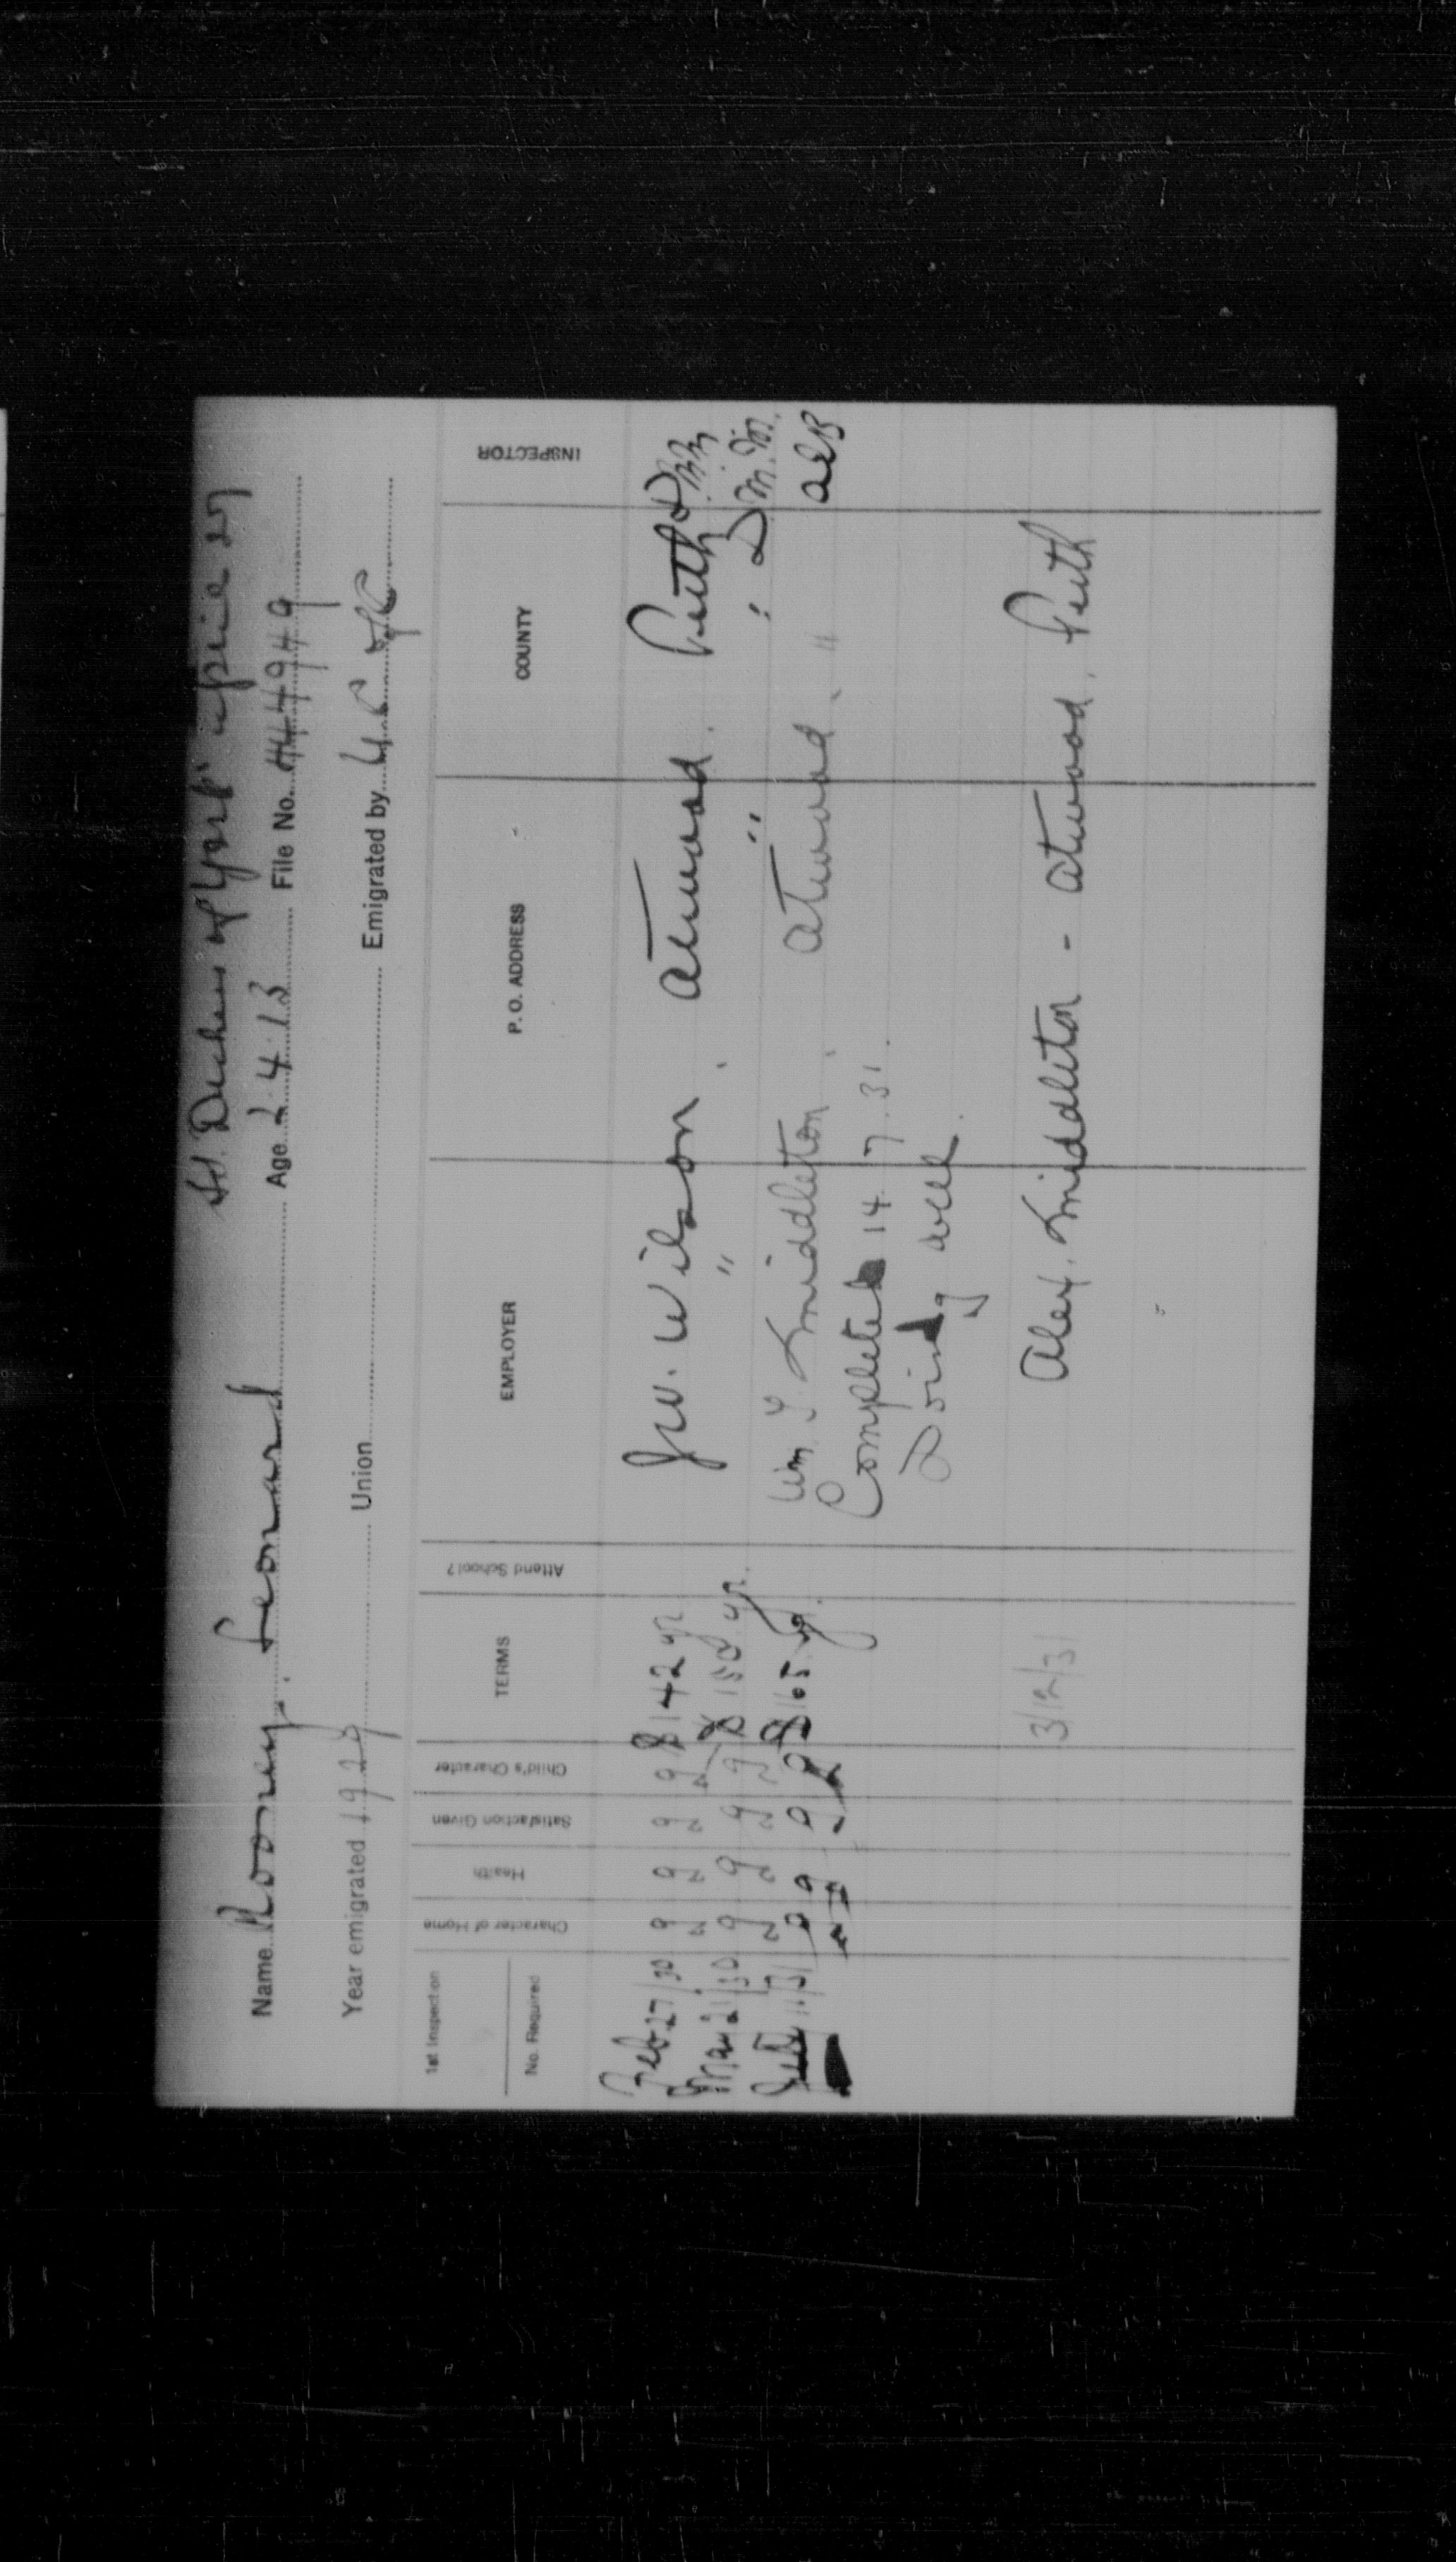 SS. Duchess of York
Name Rooney. Leonard Age 2.4.13 File No. 44949
Year emigrated 1929 Union Emigrated by
1st Inspection
No. Required
Character of Home Health Satisfaction Given Child's Character TERMS Attend School? EMPLOYER P. O. ADDRESS COUNTY INSPECTOR
Feb 27/30 g g g g $142 yr J.W. Wilson, Atwood. Perth
May 21/30 g g g g $150 yr. " " " D.M.M.
July 11/31 g g g g $165 yr. Wm. Middleton, Atwood, "
Completed 14.7.31.
Doing well.
3/12/31 Alex. Middleton - Atwood, Perth